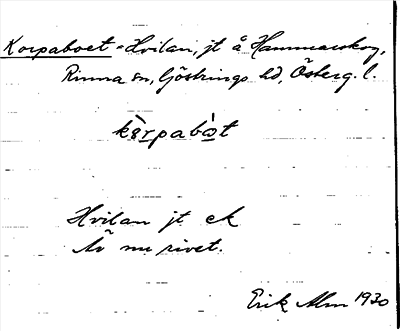 Korpaboet = Hvilan, jt å Hammarskog,
Rinna sn, Göstrings hd, Österg. l.
kòrpabòt
Hvilan jt ek
Är nu rivet.
Erik Alm 1930